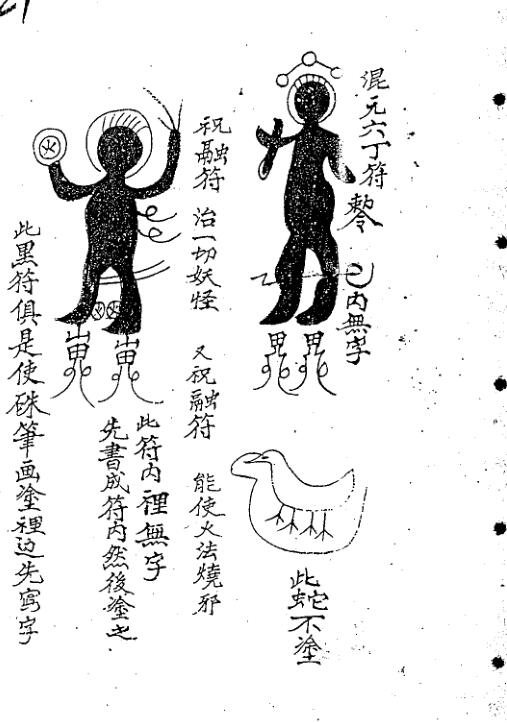 混元六丁符
內無字
此蛇不塗
祝融符 治一切妖怪 又祝融符 能使火法燒邪
此符內裡無字
先書成符內然後塗之
火
此黑符俱是使硃筆画塗裡边先寫字